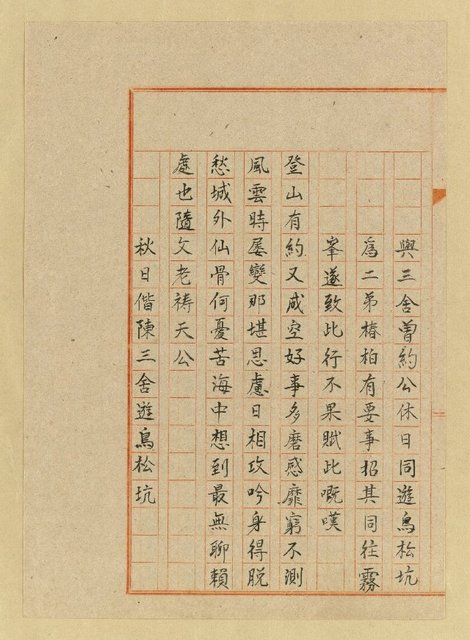 與三舍曾約公休日同遊鳥松坑
為二弟椿柏有要事招其同往霧
峯遂致此行不果賦此嘅嘆
登山有約又咸空好事多磨感靡窮不測
風雲時屡變那堪思慮日相攻吟身得脫
愁城外仙骨何憂苦海中想到最無聊賴
處也隨父老祷天公
秋日偕陳三舍遊鳥松坑